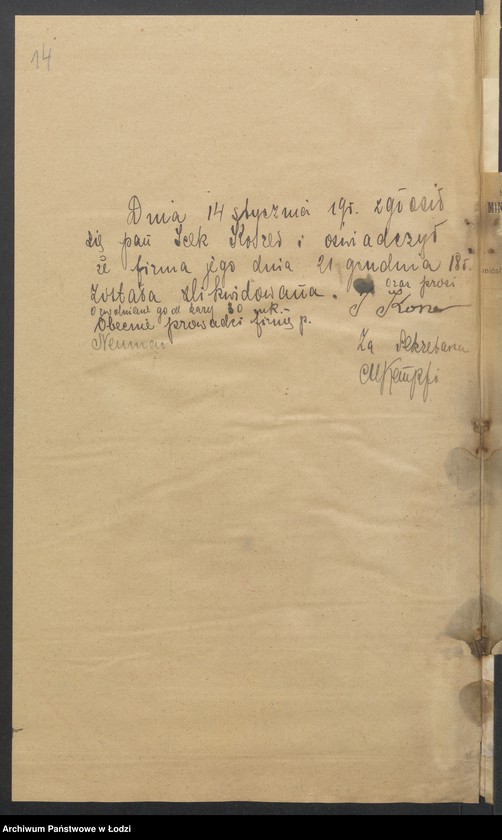 14
Dnia 14 stycznia 19r. zgłosił
się pan Icek i oświadczył
że firma jego dnia 21 grudnia 18r.
została zlikwidowana. oraz prosi
o zwolnienie go od kary 30 mk.
Obecnie prowadzi firmę p.
Neuman
Za Sekretarza
Archiwum Państwowe w Łodzi